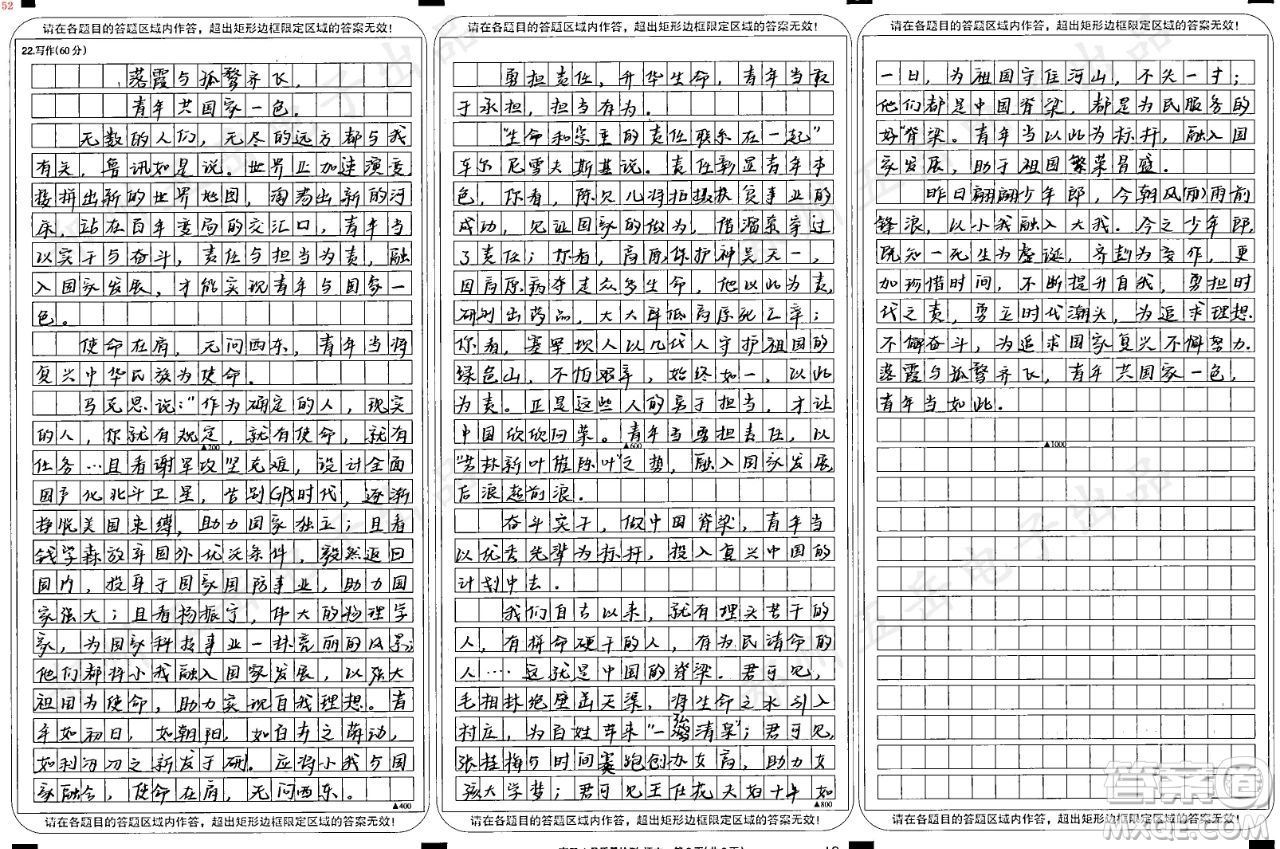 52
请在各题目的答题区域内作答，超出矩形边框限定区域的答案无效！
22.写作(60分)
落霞与孤鹜齐飞，
青年共国家一色。
无数的人们，无尽的远方都与我
有关，鲁讯如是说。世界正加速演变
投拼出新的世界地图，淘荡出新的河
床，站在百年变局的交汇口，青年当
以实干与奋斗，责任与担当为责，融
入国家发展，才能实现青年与国家一
色。
使命在肩，无问西东，青年当将
复兴中华民族为使命。
马克思说："作为确定的人，现实
的人，你就有规定，就有使命，就有
▲200
任务…且看谢军攻坚克难，设计全面
国产化北斗卫星，告别GPS时代，逐渐
挣脱美国束缚，助力国家独立；且看
钱学森放弃国外优沃条件，毅然返回
国内，投身于国家国防事业，助力国
家强大；且看杨振宁，伟大的物理学
家，为国家科技事业一抹亮丽的风景；
他们都将小我融入国家发展，以强大
祖国为使命，助力实现自我理想。青
年如初日，如朝阳，如百卉之萌动，
如利刃刀之新发于硎。应将小我与国
家融合，使命在肩，无问西东。
▲400
请在各题目的答题区域内作答，超出矩形边框限定区域的答案无效！
请在各题目的答题区域内作答，超出矩形边框限定区域的答案无效！
勇担责任，升华生命，青年当敢
于承担，担当有为。
"生命和崇重的责任联系在一起"
车尔尼雪夫斯基说。责任彰显青年本
色，你看，陈贝儿将拍摄扶贫事业的
成功，见证国家的做为，借溜索穿过
了责任；你看，高原保护神吴天一，
因高原病夺走众多生命，他以此为责，
研制出药品，大大降低高原死亡率；
你看，塞罕坝人以几代人守护祖国的
绿色山，不怕艰辛，始终如一，以此
为责。正是这些人的勇于担当，才让
中国欣欣向荣。青年当勇担责任，以
▲600
"芳林新叶催陈叶"之势，融入国家发展，
后浪越前浪。
奋斗实干，做中国脊梁，青年当
以优秀先辈为标杆，投入复兴中国的
计划中去。
我们自古以来，就有埋头苦干的
人，有拼命硬干的人，有为民请命的
人……这就是中国的脊梁。君可见，
毛相林绝壁凿天渠，将生命之水引入
村庄，为百姓带来"一弘清渠"；君可见，
张桂梅与时间赛跑创办女高，助力女
孩大学梦；君可见王仕花夫妇十年如
▲800
请在各题目的答题区域内作答，超出矩形边框限定区域的答案无效！
请在各题目的答题区域内作答，超出矩形边框限定区域的答案无效！
一日，为祖国守住河山，不失一寸；
他们都是中国脊梁，都是为民服务的
好"脊梁。青年当以此为标杆，融入国
家发展，助于祖国繁荣昌盛。
昨日翩翩少年郎，今朝风(雨)雨前
锋浪，以小我融入大我。今之少年郎
既知一死生为虚诞，齐彭为妄作，更
加珍惜时间，不断提升自我，勇担时
代之责，勇立时代潮头，为追求理想
不懈奋斗，为追求国家复兴不懈努力。
落霞与孤鹜齐飞，青年共国家一色，
青年当如此。
▲1000
请在各题目的答题区域内作答，超出矩形边框限定区域的答案无效！
答案圈
MXQE.COM